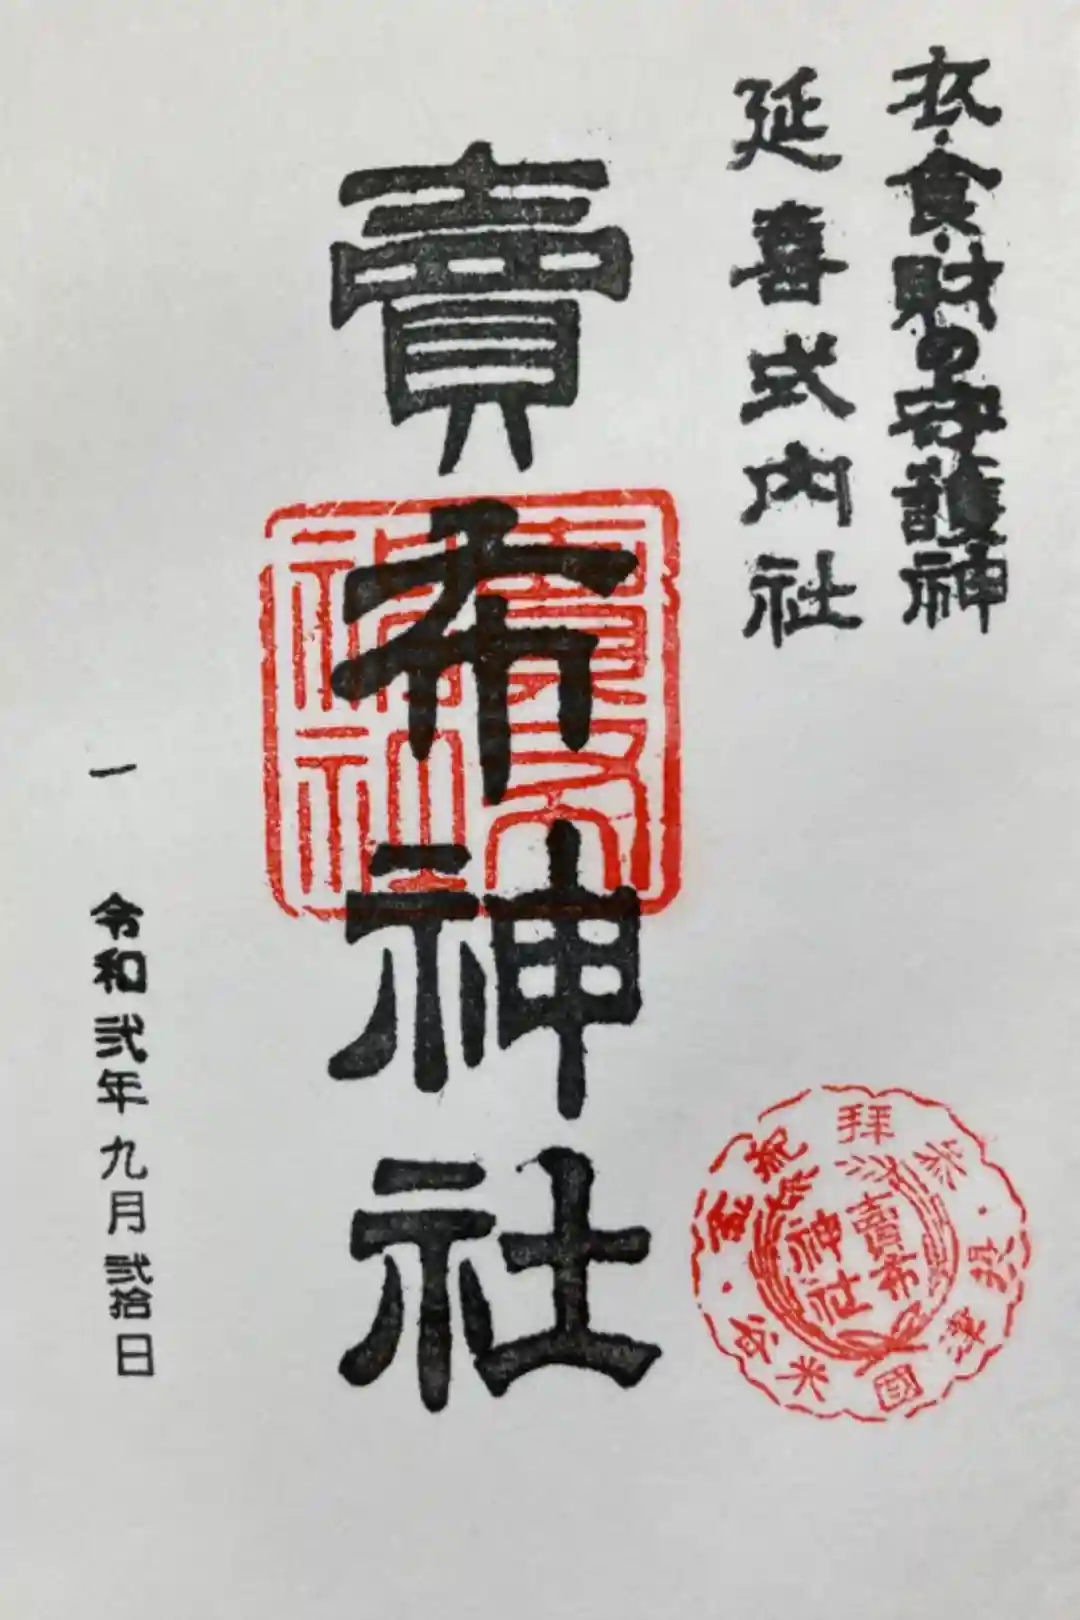 衣・食・財の守護神
延喜式内社
賣布神社
一 令和弐年九月弐拾日
参拝記念・摂津國米谷・
賣布
神社